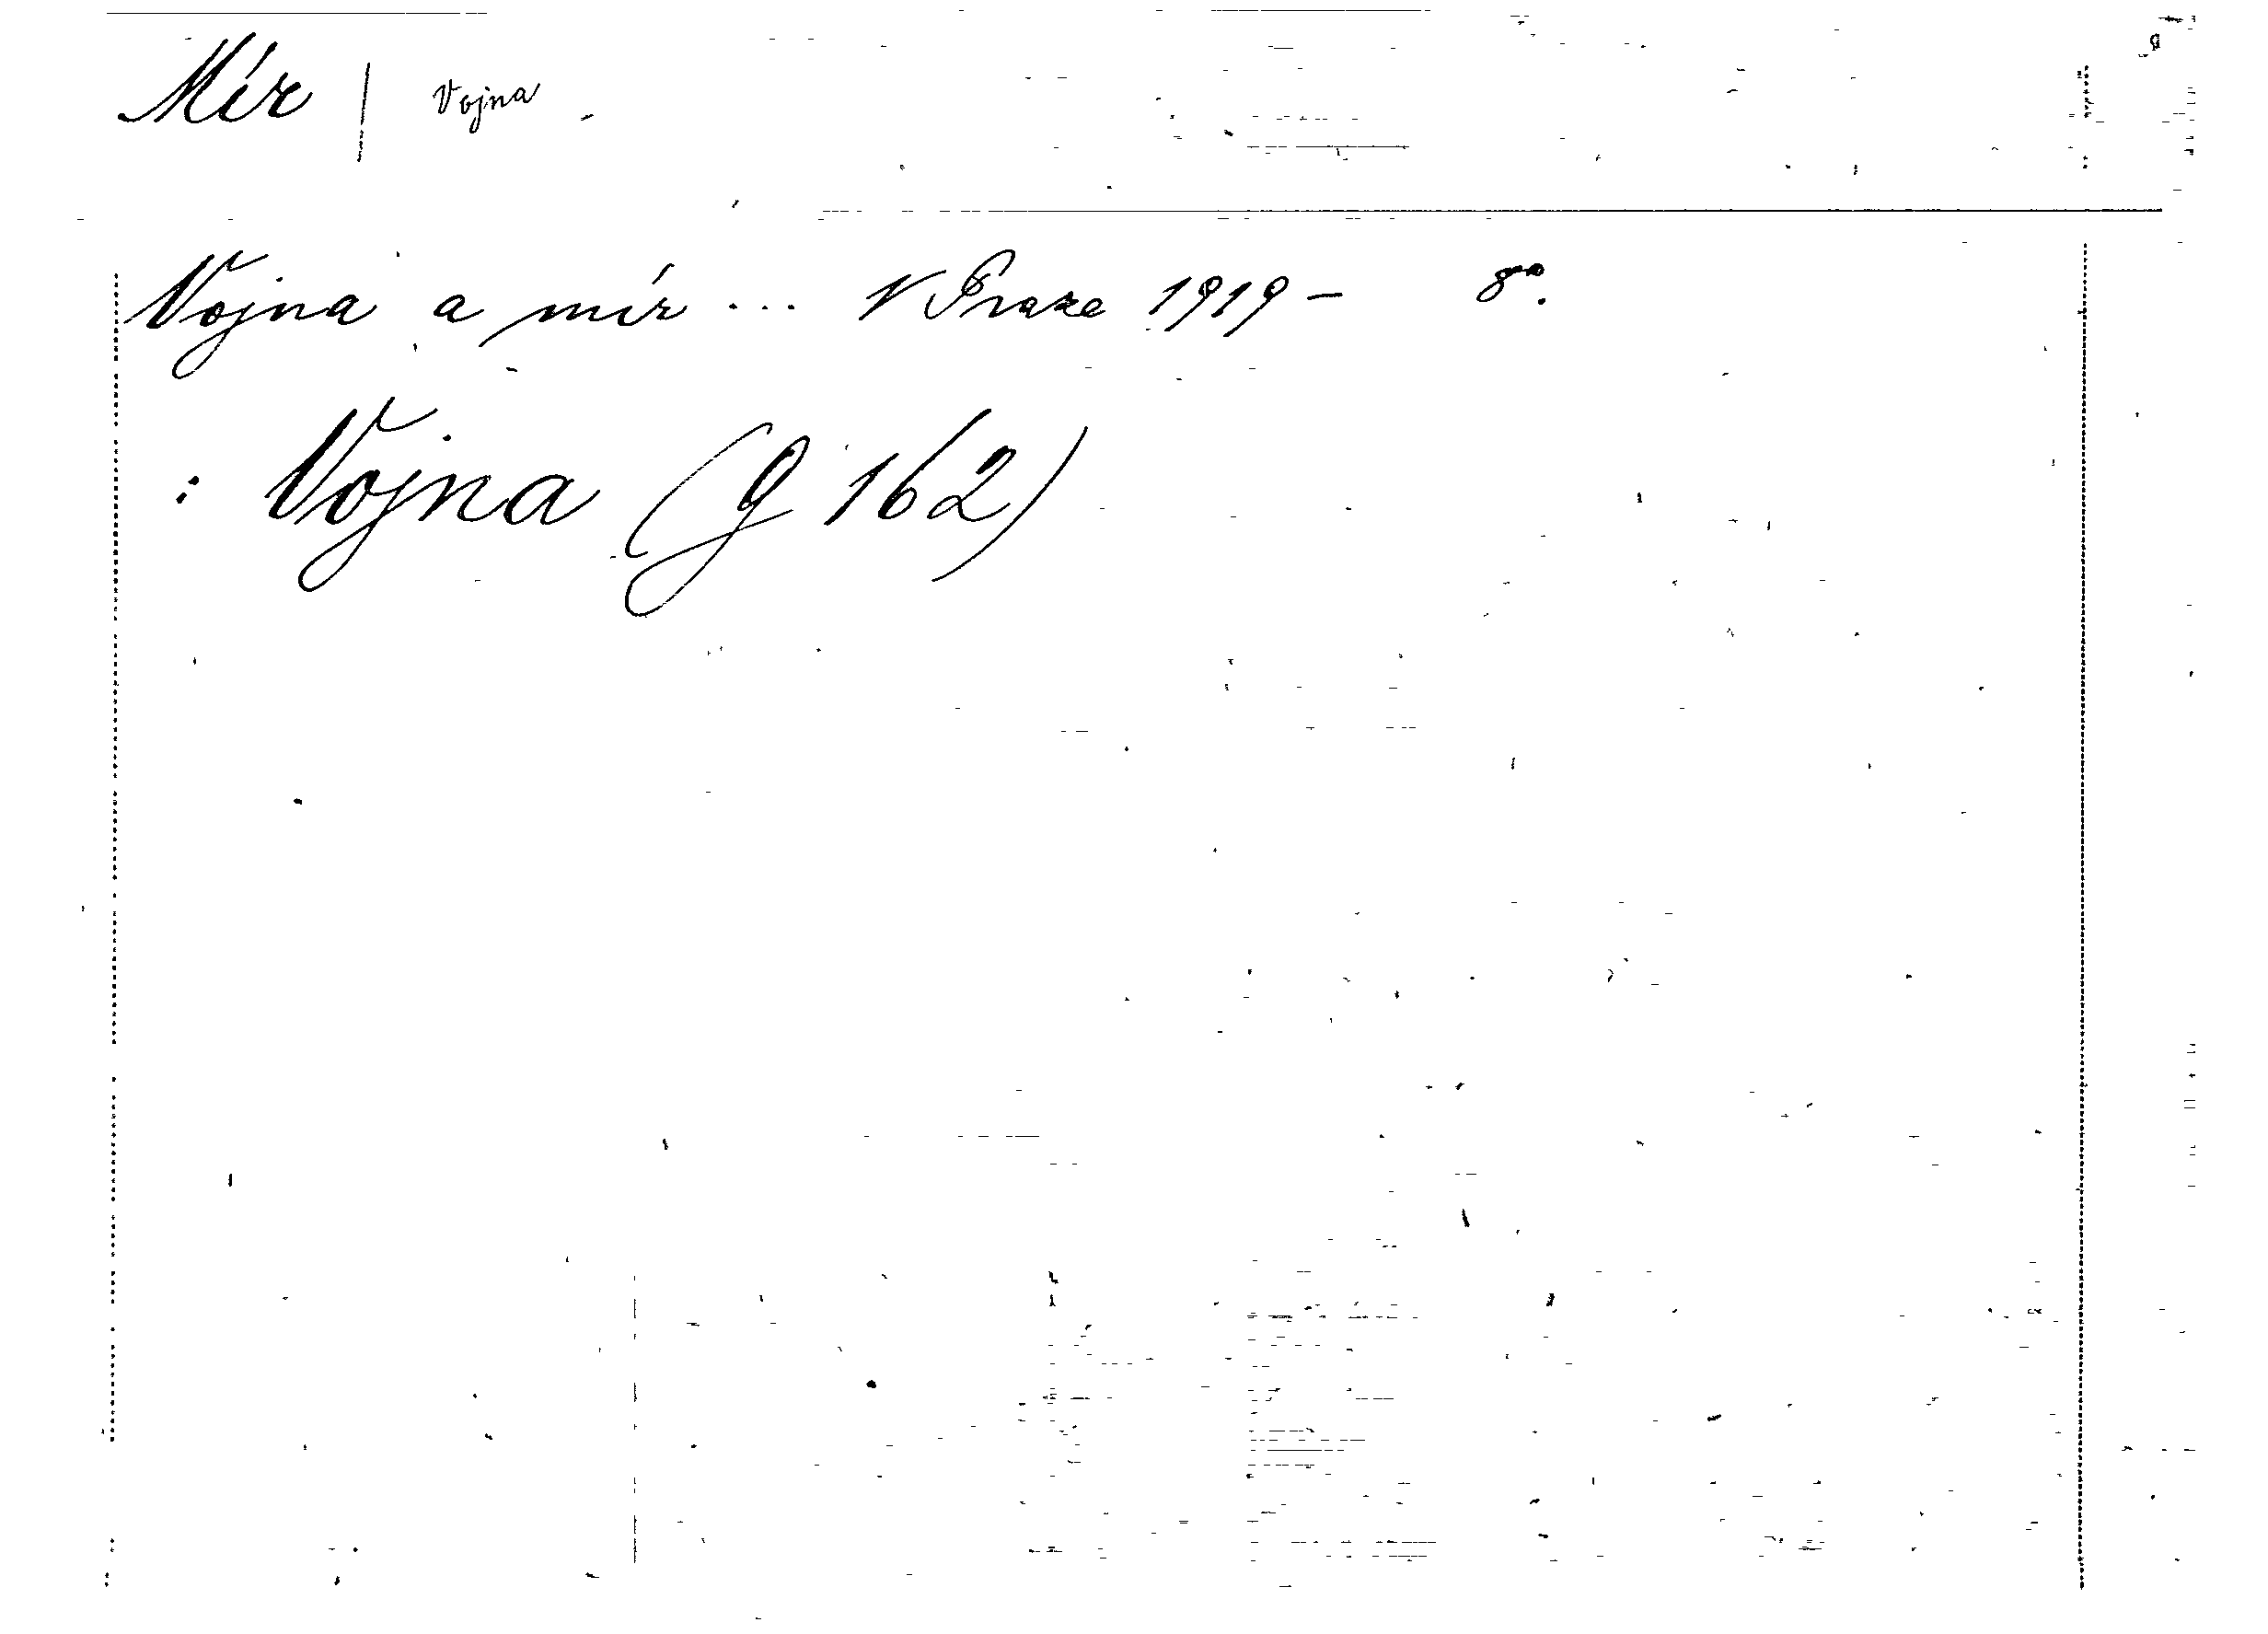 Mír | Vojna
Vojna a mír ... V Praze 1919 – 8°.
: Vojna (J 162)